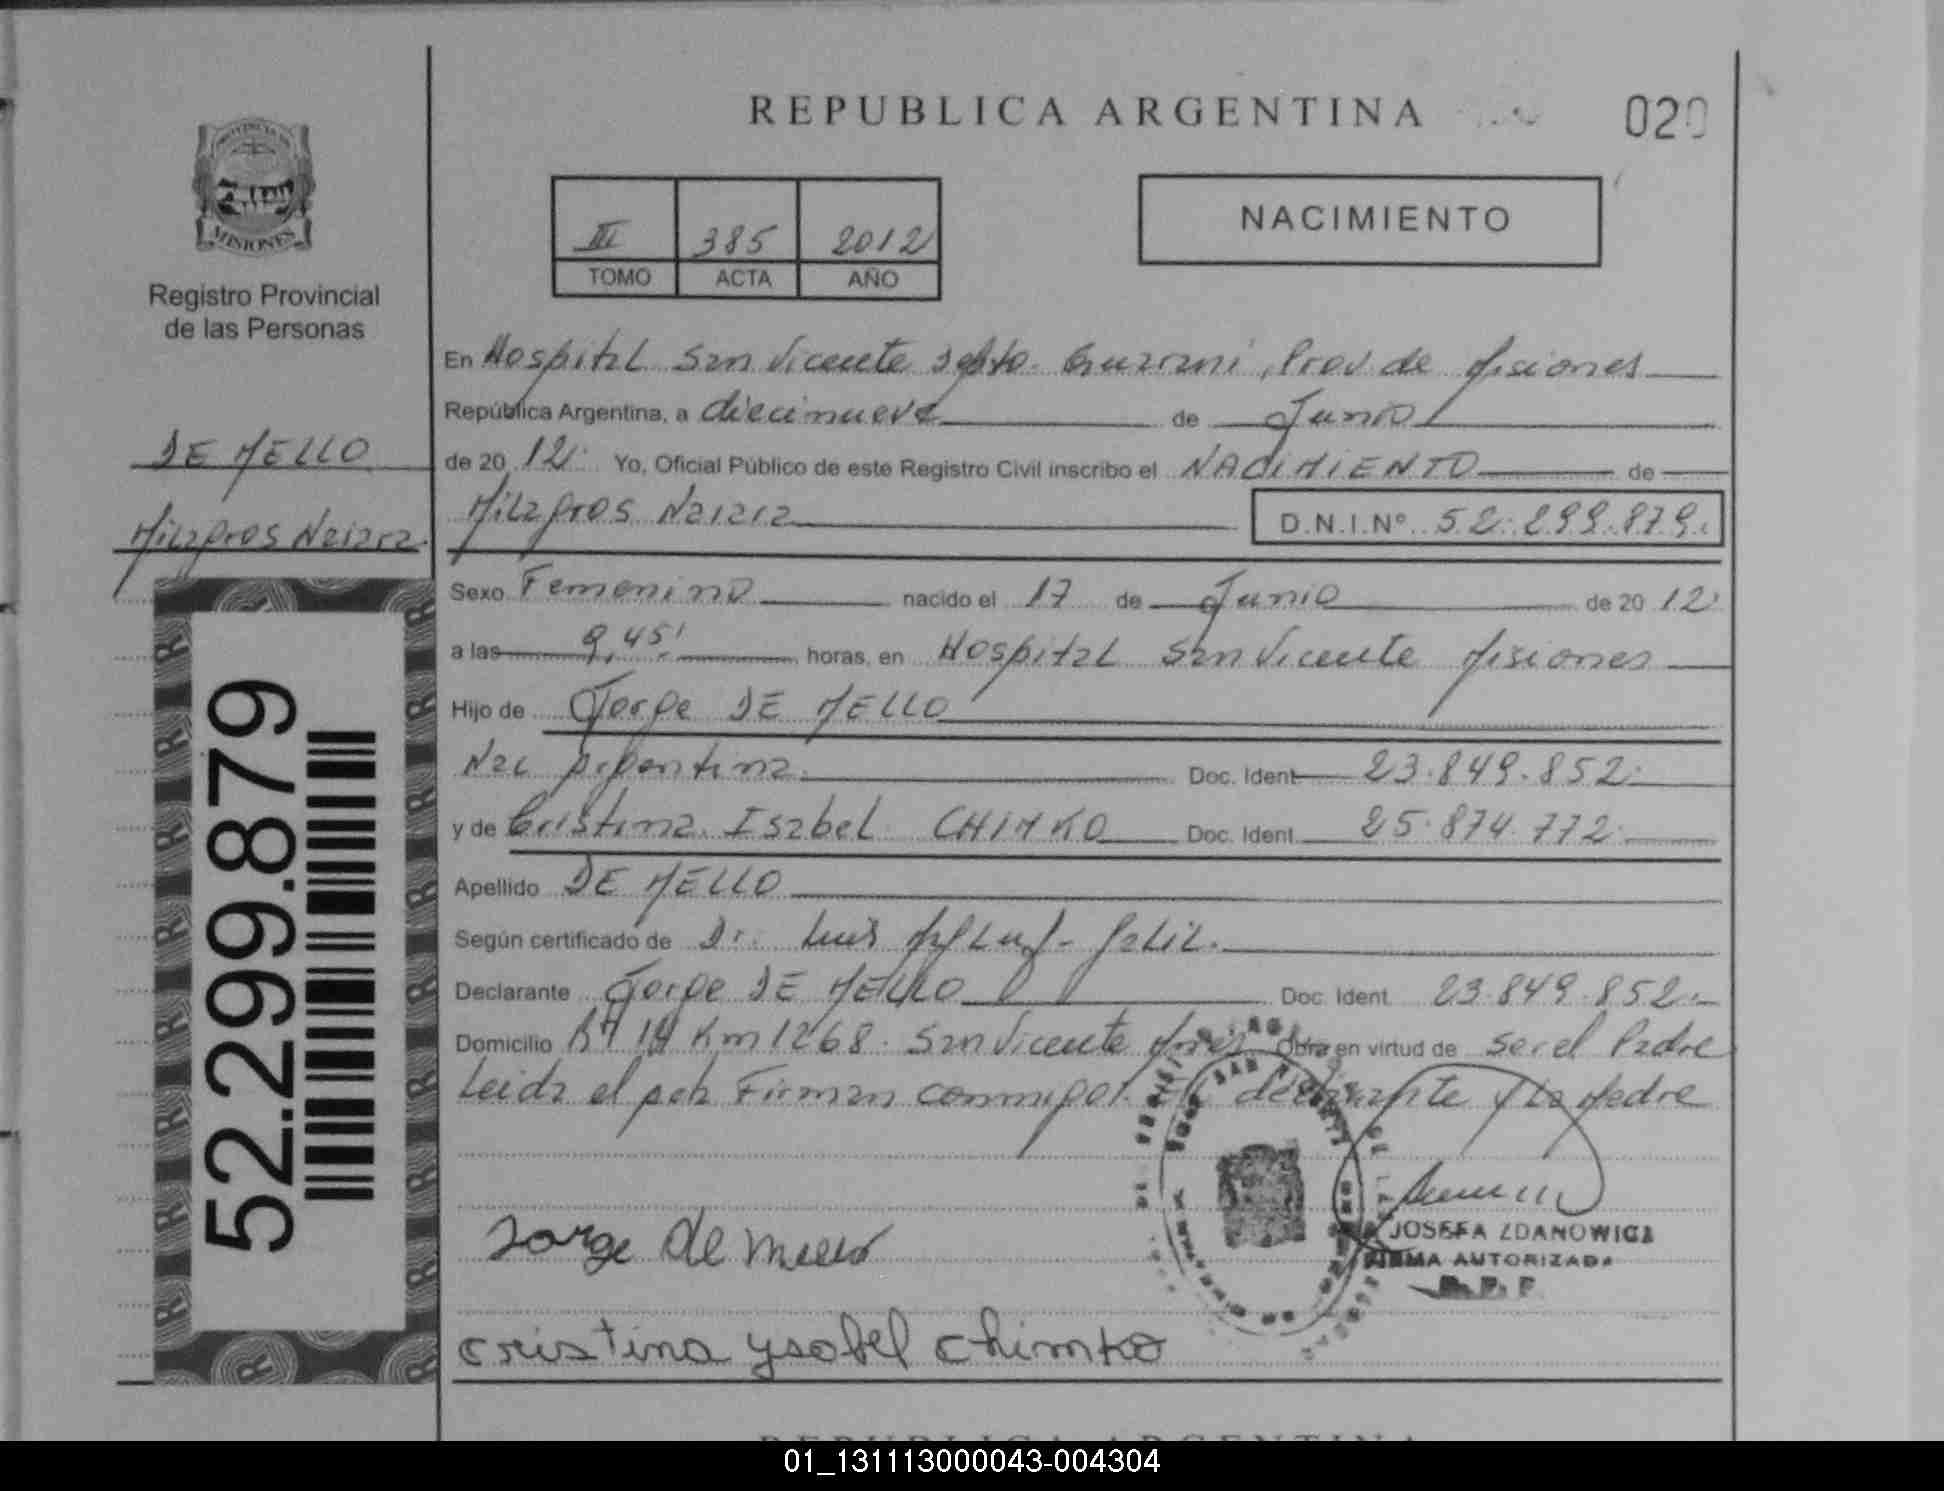 REPUBLICA ARGENTINA
020
PROVINCIA
MISIONES
Registro Provincial
de las Personas
III 385 2012
TOMO ACTA AÑO
NACIMIENTO
DE MELLO
Milagros Naiara
52.299.879
En Hospital San Vicente Dpto. Guarani, Prov de Misiones
República Argentina, a diecinueve de Junio
de 20 12 Yo, Oficial Público de este Registro Civil inscribo el NACIMIENTO de
Milagros Naiara D.N.I.Nº 52.299.879.
Sexo Femenino nacido el 17 de Junio de 20 12
a las 9,45' horas, en Hospital San Vicente Misiones
Hijo de Jorge DE MELLO
Nac Argentina. Doc. Ident 23.849.852.
y de Cristina Isabel CHIMKO Doc. Ident. 25.874.772.
Apellido DE MELLO
Según certificado de Dr. Luis
Declarante Jorge DE MELLO Doc. Ident. 23.849.852.
Domicilio Rª 14 Km 1268. San Vicente Mnes Obra en virtud de ser el Padre
Leida el acta Firman conmigo. El declarante y la Madre
Jorge de mello
JOSEFA ZDANOWICZ
FIRMA AUTORIZADA
R.P.P.
cristina ysabel chimko
REPUBLICA ARGENTINA
01_131113000043-004304